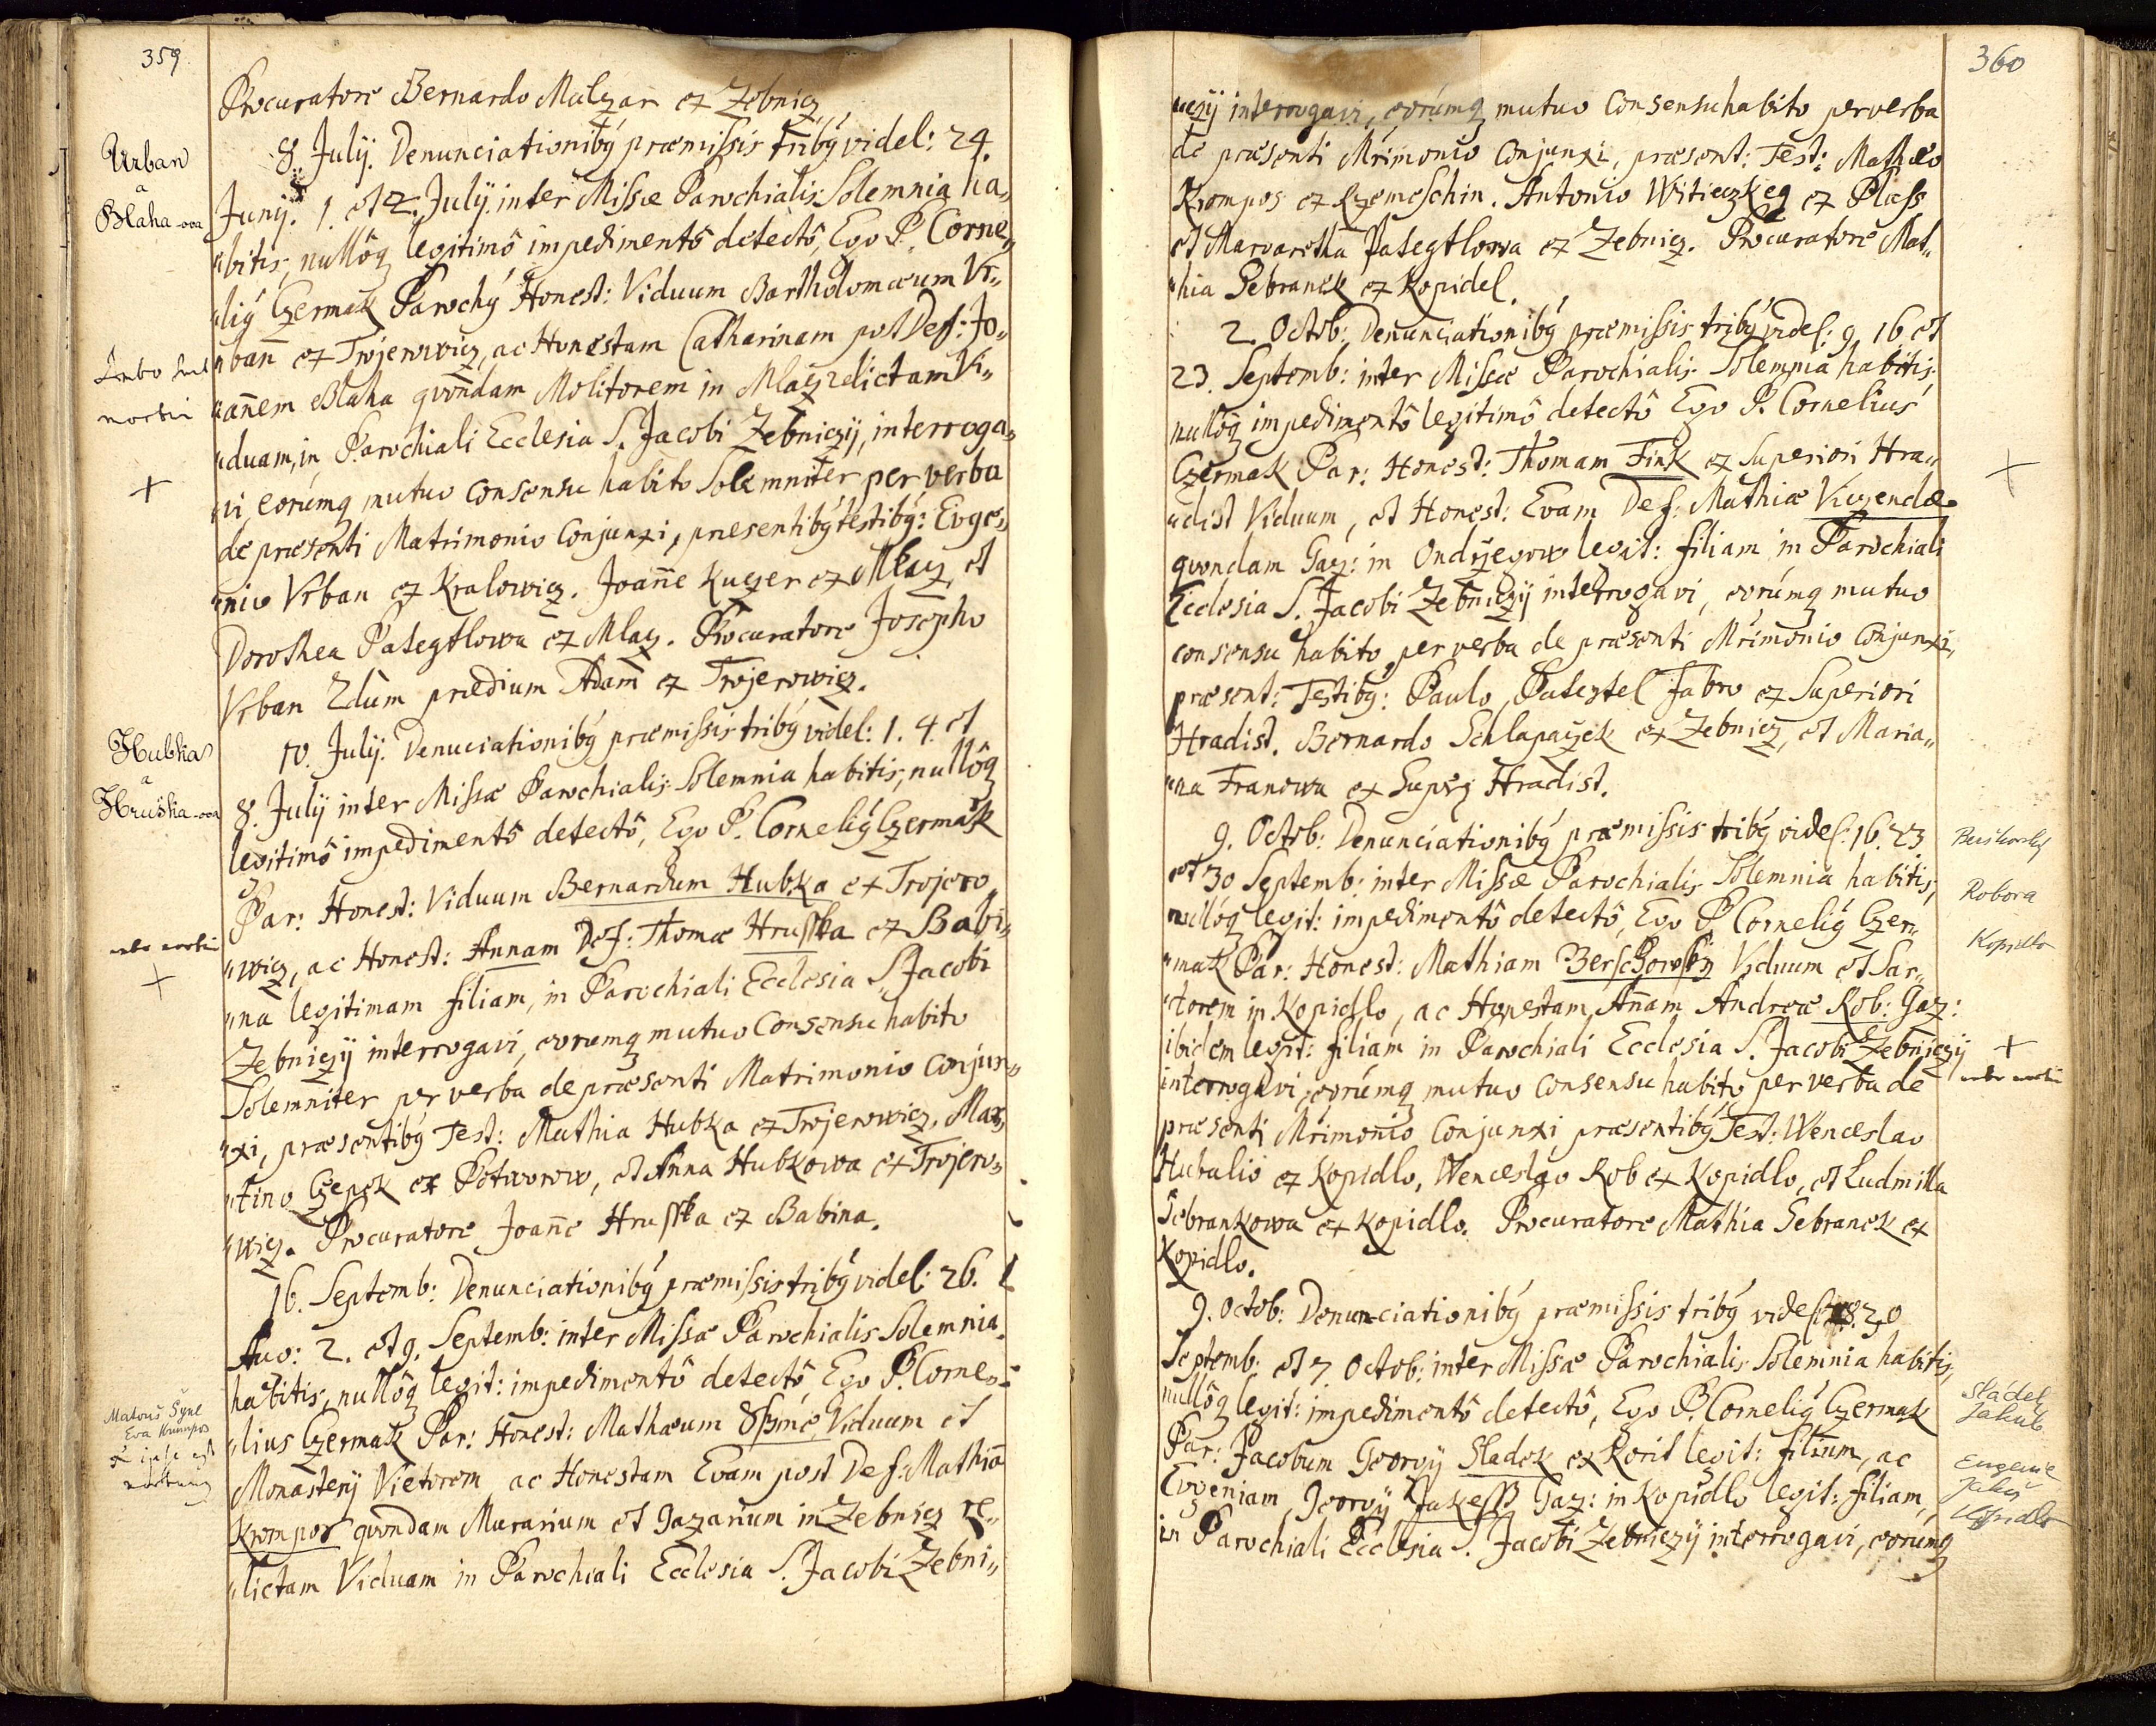 359
Procuratore Bernardo Malczar ex Żebnicz
Urban
a
Blaha-ova
8. Julÿ. Denunciationibý præmissis tribý videl: 24.
Junÿ. 1. et 2. Julÿ inter Missæ Parochialis Solemnia ha„
„bitis, nullôq legitimô impedimentô detectô, Ego P. Corne„
„lių Czermak Parochų Honest: Viduum Bartholomæum Vr„
„bann ex Trojerowicz, ac Honestam Catharinam post Def: Jo„
„annem Blaha quondam Molitorem in Mlacz relictam Vi„
mortui
+
„duam, in Parochiali Ecclesia S. Jacobi Żebniczÿ, interroga„
„vi eorúmq mutuo consensu habito Solemniter per verba
de præsenti Matrimonio Conjunxi, præsentibý testibý: Euge„
„nio Vrban ex Kralowicz. Joanne Kuczer ex Mlacz, et
Dorothea Pasegtlowa ex Mlacz. Procuratore Josepho
Vrban prædium Adam ex Trojerowicz.
Hubka
a
Hruška-ova
10. Julÿ. Denuciationibý præmissis tribý videl: 1. 4. et
8. Julÿ inter Missæ Parochialis Solemnia habitis, nullôq
legitimô impedimentô detectô, Ego P. Cornelių Czermak
Par: Honest: Viduum Bernardum Hubka ex Trojero„
„wicz, ac Honest: Annam Def: Thomæ Hrusska ex Babi„
ambo mortui
+
„na legitimam filiam, in Parochiali Ecclesia S. Jacobi
Żebniczÿ interrogavi, eorumq mutuo Consensu habito
Solemniter per verba de præsenti Matrimonio Conjun„
„xi, præsentibý Test: Mathia Hubka ex Trojerowicz, Mar„
„tino Czepek ex Potworow, et Anna Hubkowa ex Trojero„
„wicz. Procuratore Joanne Hrusska ex Babina.
16. Septemb: Denunciationibý præmissis tribý videl: 26.
Aug: 2. et 9. Septemb: inter Missæ Parochialis Solemnia
habitis, nullôq legit: impedimentô detectô, Ego P. Corne„
Matouš
Eva Krumpos
„lius Czermak Par: Honest: Mathæum Viduum et
Monasterÿ Vietorem, ac Honestam Evam post Def: Mathiâ
Krompos quondam Murarium et Gazarium in Żebnicz re„
„lictam Viduam in Parochiali Ecclesia S. Jacobi Żebni„
360
„czÿ interrogavi, eorúmq mutuo Consensu habito per verba
de præsenti Mr̃imonio Conjunxi, præsent: Test: Mathæo
Krompos ex Rzemeschin. Antonio Witieczkeg ex Plass
et Margaretha Pasegtlowa ex Żebnicz. Procuratore Mat„
„hia Sebranek ex Kopidel.
2. Octob: Denunciationibý præmissis tribý videl: 9. 16. et
23. Septemb: inter Missæ Parochialis Solemnia habitis,
nullôq impedimentô legitimô detectô Ego P. Cornelius
Czermak Par: Honest: Thomam Fink ex Superiori Hra„
+
„dist Viduum, et Honest: Evam Def: Mathiæ Viczendæ
quondam Gaz: in Ondrzegow legit: filiam in Parochiali
Ecclesia S. Jacobi Żebniczÿ interrogavi, eorúmq mutuo
consensu habito per verba de præsenti Mr̃imonio Conjunxi,
præsent: Testibý: Paulo Pasegtel Fabro ex Superiori
Hradist. Bernardo Schlapaczek ex Żebnicz, et Maria„
„na Franowa ex Super Hradist.
9. Octob: Denunciationibý præmissis tribý videl: 16. 23
et 30 Septemb: inter Missæ Parochialis Solemnia habitis,
Robova
nullôq legit: impedimentô detectô, Ego P. Cornelių Czer„
Kopidlo
„mak Par: Honest: Mathiam Berschowsky Viduum et Sar„
„torem in Kopidlo, ac Honestam Annam Andreæ Rob: Gaz:
ibidem legit: filiam in Parochiali Ecclesia S. Jacobi Żebniczÿ
+
interrogavi, eorúmq mutuo consensu habito per verba de
ambo mortui
præsenti Mr̃imonio Conjunxi præsentibý Test: Wenceslao
Hubalio ex Kopidlo, Wenceslao Rob ex Kopidlo, et Ludmilla
Sebrankowa ex Kopidlo. Procuratore Mathia Sebranek ex
Kopidlo.
9. Octob: Denunciationibý præmissis tribý videl: 30
Septemb: et 7 Octob: inter Missæ Parochialis Solemnia habitis,
Sládek
Jakub
nullôq legit: impedimentô detectô, Ego P. Cornelių Czermak
Par: Jacobum Georgÿ Sladek ex Korit legit: filium, ac
Eugenie
Jakeš
Kopidlo
Eugeniam Georgÿ Jakess Gaz: in Kopidlo legit: filiam,
in Parochiali Ecclesia S. Jacobi Żebniczÿ interrogavi, eorumq